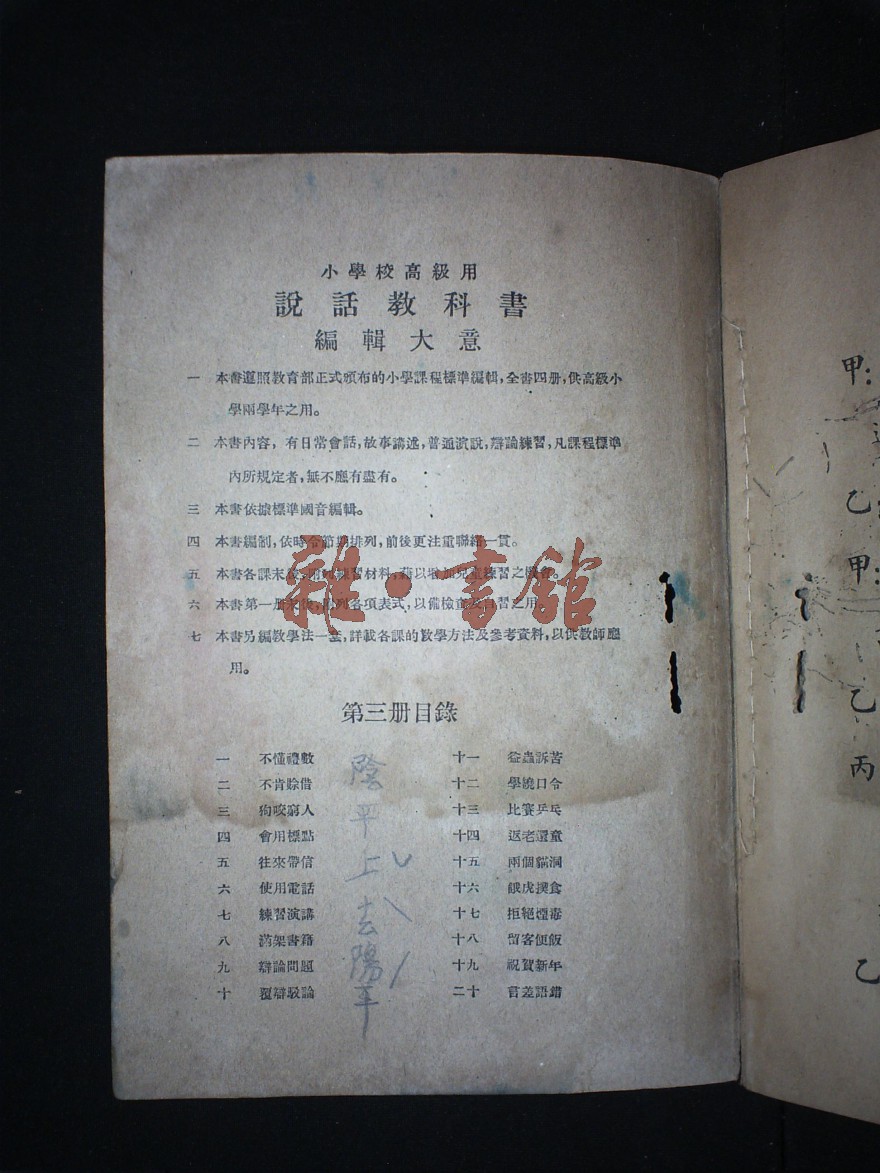 小學校高級用
說話教科書
編輯大意
一 本書遵照教育部正式頒布的小學課程標準編輯,全書四册,供高級小
學兩學年之用。
二 本書內容,有日常會話,故事講述,普通演說,辯論練習,凡課程標準
內所規定者,無不應有盡有。
三 本書依據標準國音編輯。
四 本書編制,依時令節期排列,前後更注重聯絡一貫。
五 本書各課末後,附列練習材料,藉以增加兒童練習之機會。
六 本書第一册末後,附列各項表式,以備檢查及自習之用。
七 本書另編教學法一套,詳載各課的敎學方法及參考資料,以供教師應
用。
雜·書館
第三册目錄
一 不懂禮數
二 不肯賒借
三 狗咬窮人
四 會用標點
五 往來帶信
六 使用電話
七 練習演講
八 滿架書籍
九 辯論問題
十 覆辯駁論
十一 益蟲訴苦
十二 學繞口令
十三 比賽乒乓
十四 返老還童
十五 兩個貓洞
十六 餓虎撲食
十七 拒絕煙毒
十八 留客便飯
十九 祝賀新年
二十 言差語錯
陰平
上ˇ
去ˋ
陽平ˊ
甲:
乙
甲:
乙
丙
乙